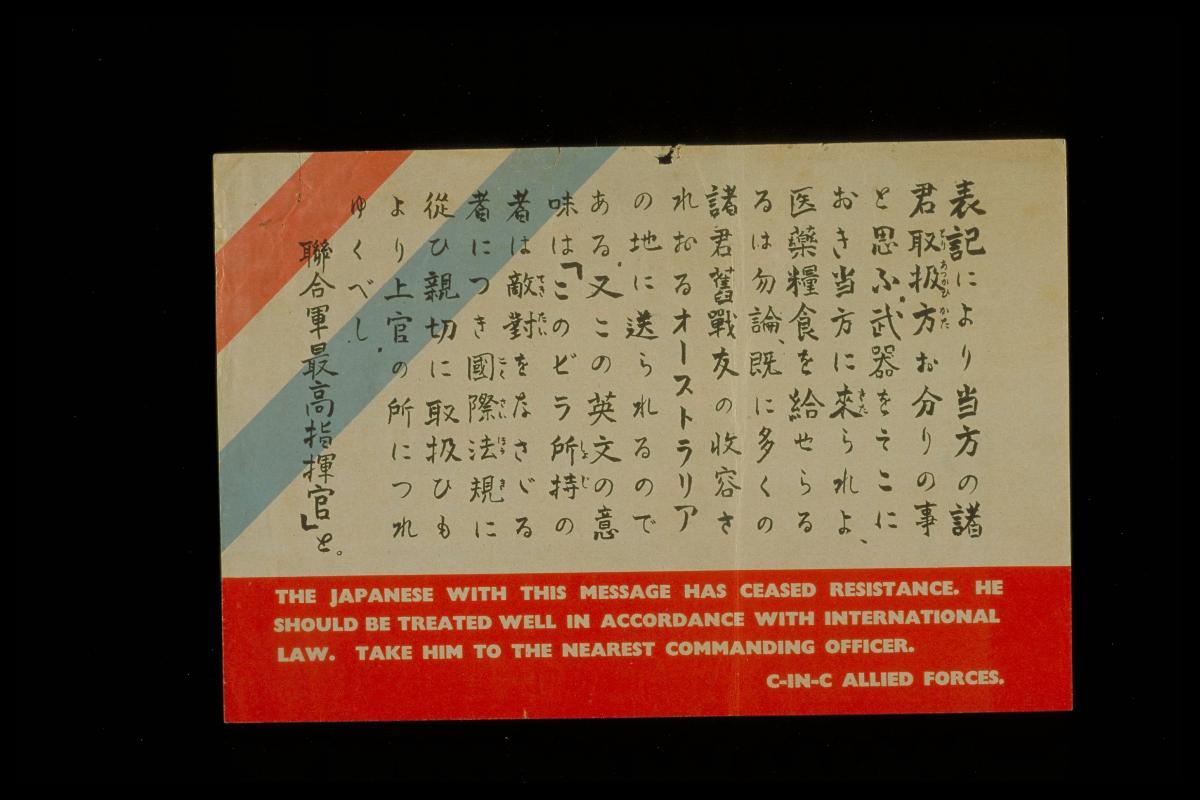 表記により当方の諸
君取扱方お分りの事
と思ふ。武器をそこに
おき当方に来られよ、
医藥糧食を給せらる
るは勿論、既に多くの
諸君舊戰友の收容さ
れおるオーストラリア
の地に送られるので
ある。又この英文の意
味は「このビラ所持の
者は敵對をなさゞる
者につき國際法規に
從ひ親切に取扱ひも
より上官の所につれ
ゆくべし。
聯合軍最高指揮官」と。
THE JAPANESE WITH THIS MESSAGE HAS CEASED RESISTANCE. HE
SHOULD BE TREATED WELL IN ACCORDANCE WITH INTERNATIONAL
LAW. TAKE HIM TO THE NEAREST COMMANDING OFFICER.
C-IN-C ALLIED FORCES.